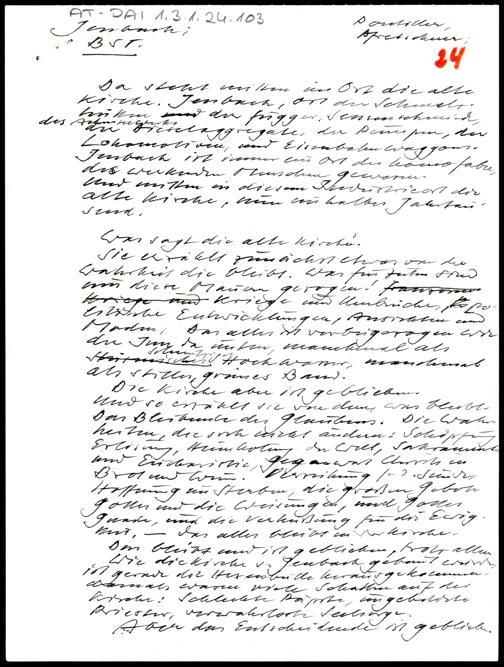 AT-DAI 1.3.1.24.103
Jenbach;
BST.
24
Da steht mitten im Ort die alte
Kirche. Jenbach, Ort der Schmelz-
hütten und der Fugger, Sensenschmiede,
des Achenseewerks
der Dieselaggregate, der Pumpen, der
Lokomotiven, und Eisenbahnwaggons.
Jenbach ist immer ein Ort des homo faber,
des werkenden Menschen gewesen.
Und mitten in diesem Industrieort die
alte Kirche, nun ein halbes Jahrtau-
send.
Was sagt die alte Kirche.
Sie erzählt zunächst etwas von der
Wahrheit die bleibt. Was für Zeiten sind
um diese Mauern gezogen!
Kriege und Kriege und Umbrüche, po-
litische Entwicklungen, Ansichten und
Moden, Das alles ist vorbeigezogen wie
der Inn da unten, manchmal als
Hochwasser, manchmal
als stilles, grünes Band.
Die Kirche aber ist geblieben.
Und so erzählt sie von dem, was bleibt.
Das Bleibende des Glaubens. Die Wahr-
heiten, die sich nicht ändern: Schöpfung
Erlösung, Heimholung der Welt, Sakramente
und Eucharistie, Gegenwart Christi in
Brot und Wein. Verzeihung der Sünden
Hoffnung im Sterben, die großen Gebote
Gottes und die Weisungen, und Gottes
Gnade, und die Verheißung für die Ewig-
keit, – das alles bleibt in der Kirche.
Das bleibt und ist geblieben, trotz allem
Wie die Kirche v. Jenbach gebaut wurde,
ist gerade die herausgekommen
damals waren viele Schatten auf der
Kirche: Schlechte Päpste, ungebildete
Priester, verwahrloste Seelsorge.
Aber das Entscheidende ist geblieben.